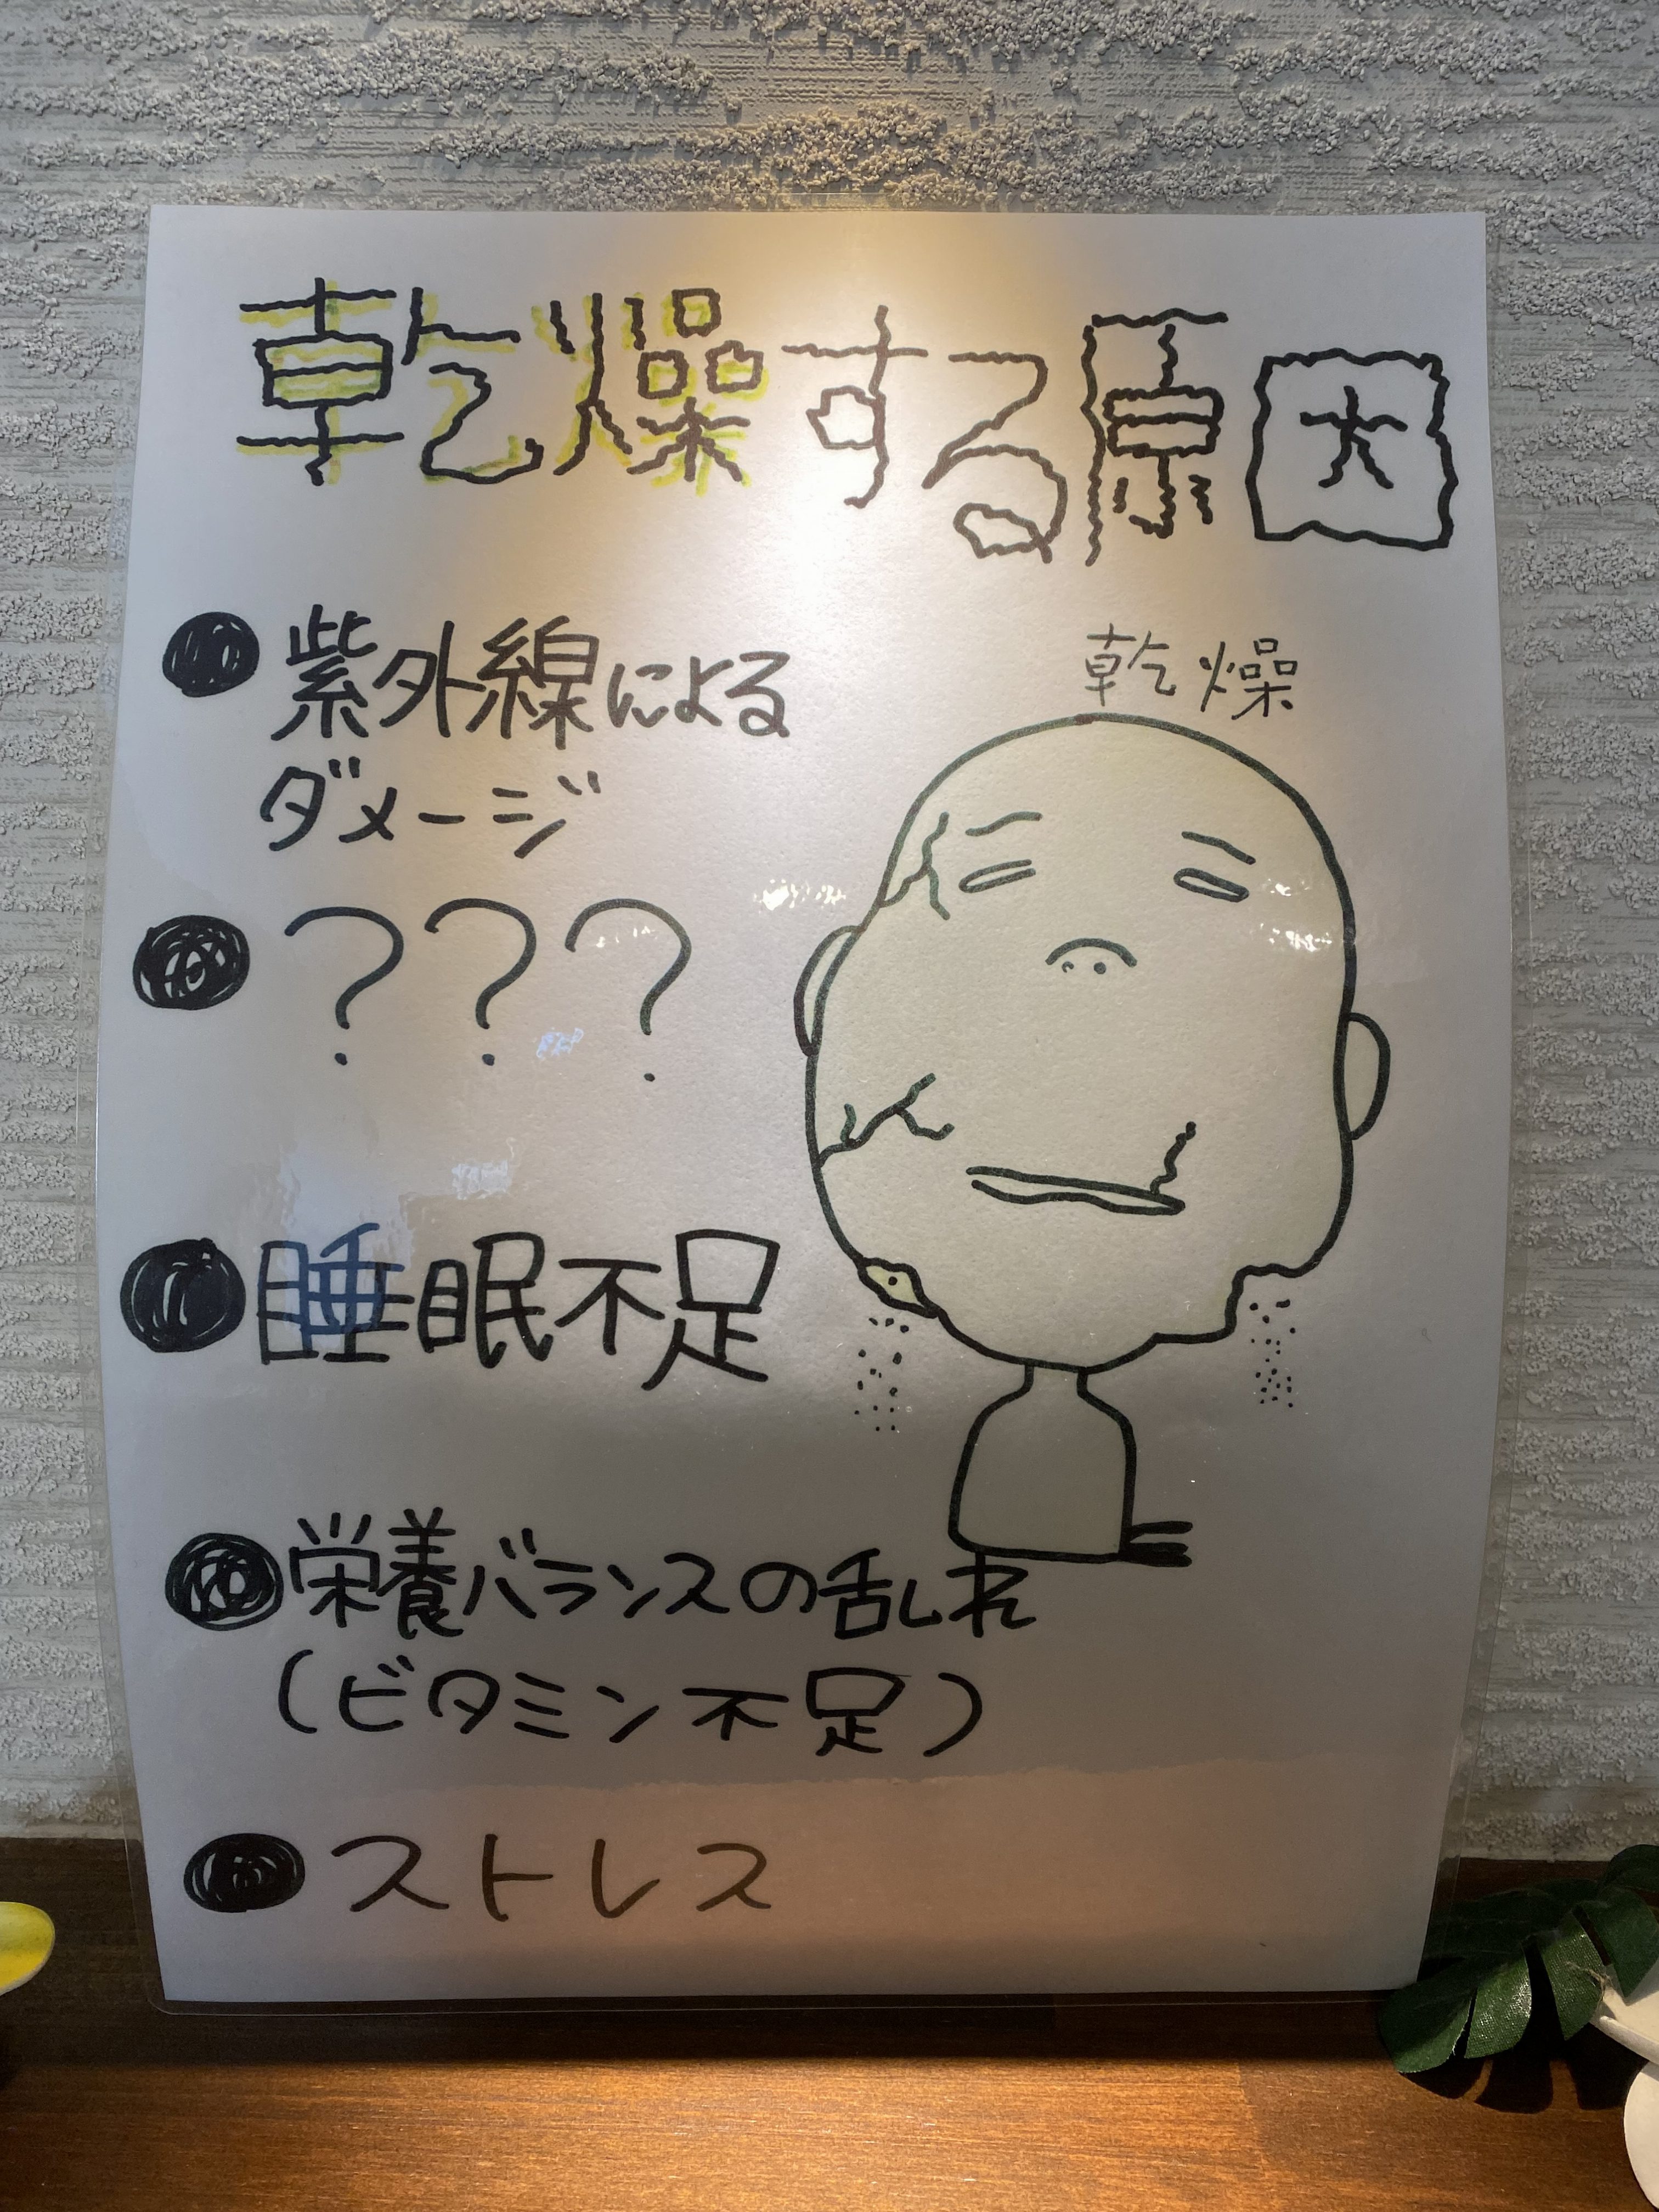 乾燥する原因
紫外線による
ダメージ
乾燥
???
睡眠不足
栄養バランスの乱れ
(ビタミン不足)
ストレス